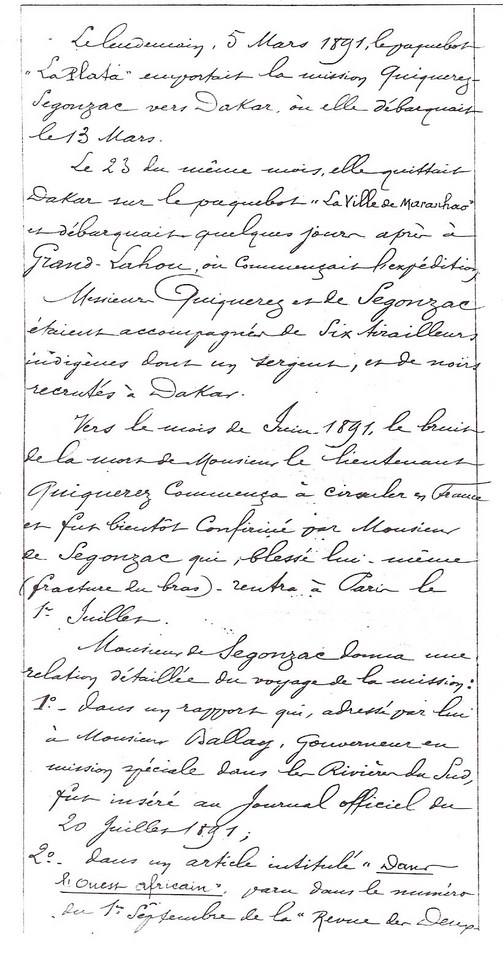 Le lendemain, 5 Mars 1891, le paquebot
"La Plata" emportait la mission Quiquerez-
Segonzac vers Dakar, où elle débarquait
le 13 Mars.
Le 23 du même mois, elle quittait
Dakar sur le paquebot "La Ville de Maranhao"
et débarquait quelques jours après à
Grand-Lahou, où commençait l'expédition.
Messieurs Quiquerez et de Segonzac
étaient accompagnés de six tirailleurs
indigènes dont un sergent, et de noirs
recrutés à Dakar.
Vers le mois de Juin 1891, le bruit
de la mort de Monsieur le lieutenant
Quiquerez commença à circuler en France
et fut bientôt confirmé par Monsieur
de Segonzac qui, blessé lui-même
(fracture du bras) - rentra à Paris le
1er Juillet.
Monsieur de Segonzac donna une
relation détaillée du voyage de la mission:
1º- dans un rapport qui, adressé par lui
à Monsieur Ballay, Gouverneur en
mission spéciale dans les Rivières du Sud,
fut inséré au Journal officiel du
20 Juillet 1891;
2º- dans un article intitulé "Dans
l'Ouest africain", paru dans le numéro
du 1er Septembre de la "Revue des Deux-